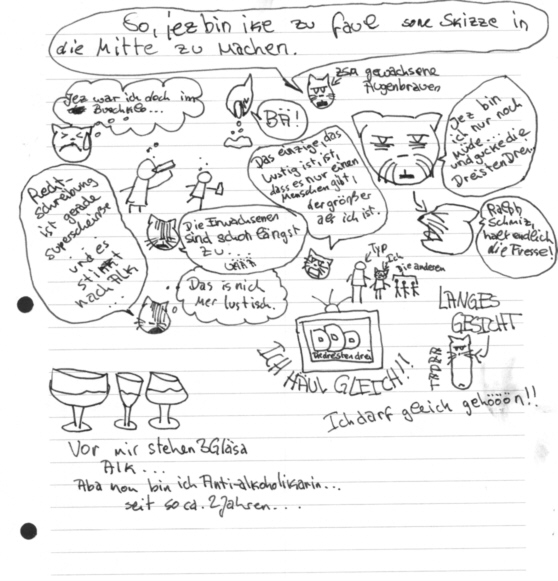 So, jez bin ike zu faul sone Skizze in
die Mitte zu machen.
zsm gewachsene
Augenbrauen
Jez war ich doch im
BÄÄ!
Jez bin
ich nur noch
Müde...
und gucke die
Dreisten Drei.
Das einzige, das
lustig ist, ist,
dass es nur einen
Menschen gibt,
der größer
als ich ist.
Recht-
schreibung
ist gerade
Superscheiße
...
und es
stinkt
nach Alk
...
Die Erwachsenen
sind schon längst
zu...
Das is nich
Mer lustisch.
Ralph
Schmiz,
halt endlich
die Fresse!
Typ
Ich
Die anderen
Diedreistendrei
ICH HÄUL GLEICH!!
LANGES
GESICHT
Ich darf gleich gehööön!!
Vor mir stehen 3 Gläsa
Alk...
Aba nun bin ich Anti-alkoholikarin...
seit so ca. 2 Jahren...